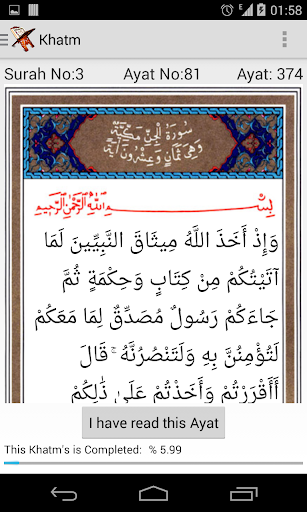 01:58
Khatm
Surah No:3 Ayat No:81 Ayat: 374
سورة الجن مكية
وهي ثمان وعشرون آية
بسم الله الرحمن الرحيم
وَإِذْ أَخَذَ اللَّهُ مِيثَاقَ النَّبِيِّينَ لَمَا
آتَيْتُكُمْ مِنْ كِتَابٍ وَحِكْمَةٍ ثُمَّ
جَاءَكُمْ رَسُولٌ مُصَدِّقٌ لِمَا مَعَكُمْ
لَتُؤْمِنُنَّ بِهِ وَلَتَنْصُرُنَّهُ ۚ قَالَ
أَأَقْرَرْتُمْ وَأَخَذْتُمْ عَلَىٰ ذَٰلِكُمْ
I have read this Ayat
This Khatm's is Completed: % 5.99